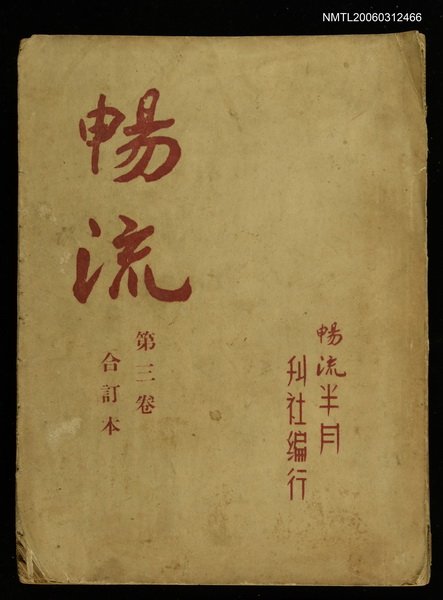 NMTL20060312466
暢流
第三卷
合訂本
暢流半月
刋社編行